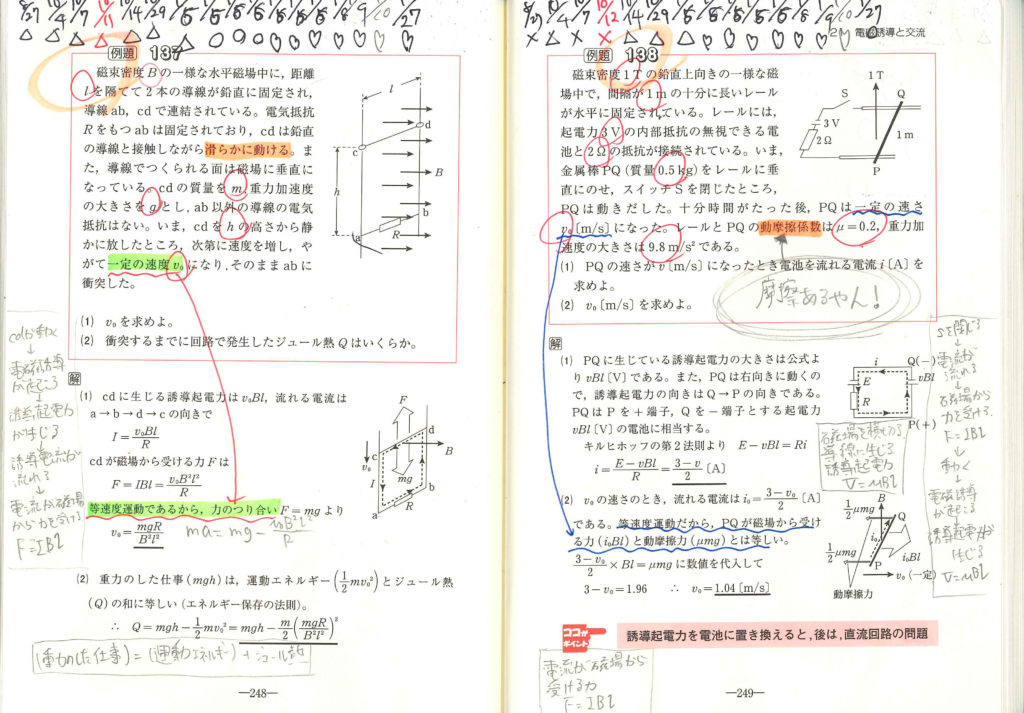 8/27 10/4 10/7 10/11 10/14 10/29 1/5 1/5 1/5 1/5 1/5 1/8 1/9 1/10 1/27
例題 137
磁束密度Bの一様な水平磁場中に，距離
lを隔てて2本の導線が鉛直に固定され，
導線ab，cdで連結されている。電気抵抗
Rをもつabは固定されており，cdは鉛直
の導線と接触しながら滑らかに動ける。ま
た，導線でつくられる面は磁場に垂直に
なっている。cdの質量をm，重力加速度
の大きさをgとし，ab以外の導線の電気
抵抗はない。いま，cdをhの高さから静
かに放したところ，次第に速度を増し，や
がて一定の速度v₀になり，そのままabに
衝突した。
l
d
c
B
h
b
a
R
(1) v₀を求めよ。
(2) 衝突するまでに回路で発生したジュール熱Qはいくらか。
cdが動く
↓
電磁誘導
が起こる
↓
誘導起電力
が生じる
↓
誘導電流が
流れる
↓
電流が磁場
から力を受ける
F=IBl
解
(1) cdに生じる誘導起電力はv₀Bl，流れる電流は
a→b→d→cの向きで
I＝v₀Bl/R
cdが磁場から受ける力Fは
F＝IBl＝v₀B²l²/R
等速度運動であるから，力のつり合いF＝mgより
v₀＝mgR/B²l²
ma=mg-v₀B²l²/R
F
d
c
B
v₀
I
mg
b
a
R
(2) 重力のした仕事(mgh)は，運動エネルギー(1/2mv₀²)とジュール熱
(Q)の和に等しい(エネルギー保存の法則)。
∴ Q＝mgh－1/2mv₀²＝mgh－m/2(mgR/B²l²)²
(重力のした仕事)=(運動エネルギー)+ジュール熱
―248―
8/27 10/4 10/7 10/12 10/14 10/29 1/5 1/5 1/5 1/5 1/5 1/8 1/9 1/10 1/27
電磁誘導と交流
例題 138
磁束密度1Tの鉛直上向きの一様な磁
場中で，間隔が1mの十分に長いレール
が水平に固定されている。レールには，
起電力3Vの内部抵抗の無視できる電
池と2Ωの抵抗が接続されている。いま，
金属棒PQ(質量0.5kg)をレールに垂
直にのせ，スイッチSを閉じたところ，
PQは動きだした。十分時間がたった後，PQは一定の速さ
v₀〔m/s〕になった。レールとPQの動摩擦係数はμ＝0.2，重力加
速度の大きさは9.8m/s²である。
1T
S
Q
3V
2Ω
1m
P
(1) PQの速さがv〔m/s〕になったとき電池を流れる電流i〔A〕を
求めよ。
(2) v₀〔m/s〕を求めよ。
摩察あるやん！
解
(1) PQに生じている誘導起電力の大きさは公式よ
りvBl〔V〕である。また，PQは右向きに動くの
で，誘導起電力の向きはQ→Pの向きである。
PQはPを＋端子，Qを－端子とする起電力
vBl〔V〕の電池に相当する。
キルヒホッフの第2法則より E－vBl＝Ri
i＝E－vBl/R＝3－v/2〔A〕
i
Q(－)
E
vBl
R
P(＋)
磁場を横切る
導線に生じる
誘導起電力
V=vBl
(2) v₀の速さのとき，流れる電流はi₀＝3－v₀/2〔A〕
である。等速度運動だから，PQが磁場から受け
る力(i₀Bl)と動摩擦力(μmg)とは等しい。
3－v₀/2×Bl＝μmgに数値を代入して
3－v₀＝1.96 ∴ v₀＝1.04〔m/s〕
B
1/2μmg
Q
i₀
i₀Bl
1/2μmg
P
v₀(一定)
動摩擦力
Sを閉じる
↓
電流が
流れる
↓
磁場から
力を受ける
F=IBl
↓
動く
↓
電磁誘導
が起こる
↓
誘導起電力が
生じる
V=vBl
ココがポイント
誘導起電力を電池に置き換えると，後は，直流回路の問題
電流が磁場から
受ける力
F=IBl
―249―